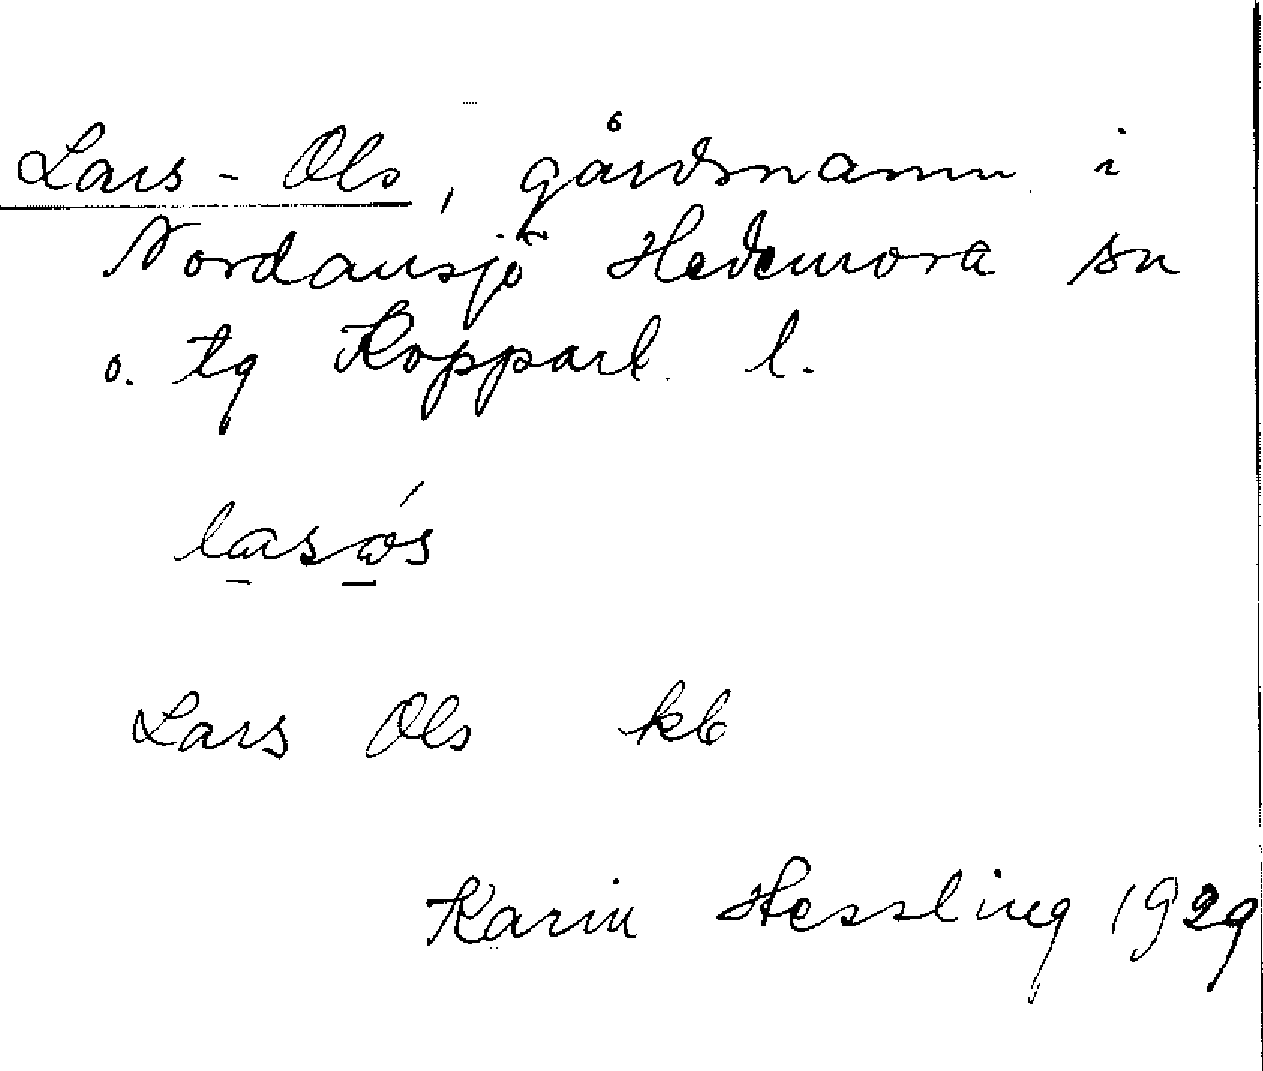 Lars-Ols, gårdsnamn i
Nordansjö Hedemora sn
o. tg Kopparb. l.
Lars Ols kb
Karin Hessling 1929